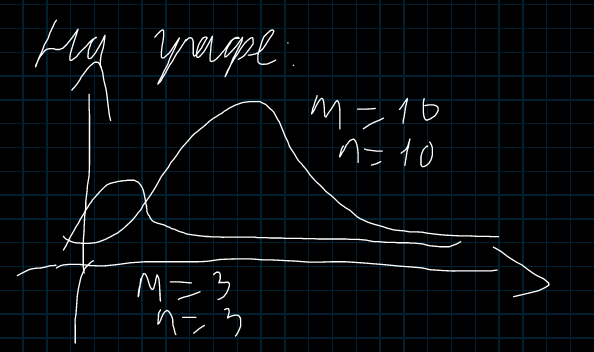 На графе:
m = 10
n = 10
m = 3
n = 3